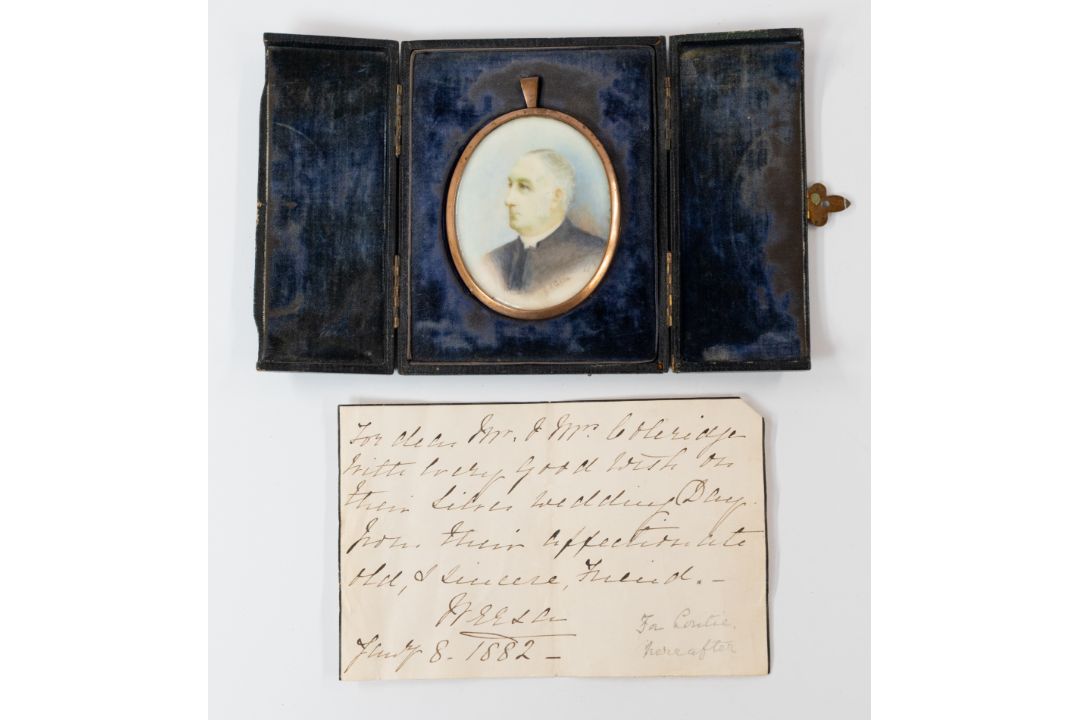 For dear Mr. & Mrs. Coleridge
With Every Good Wish on
Their Silver Wedding Day.
From their affectionate
old, & Sincere, Friend. —
Jany 8. 1882 —
For
hereafter